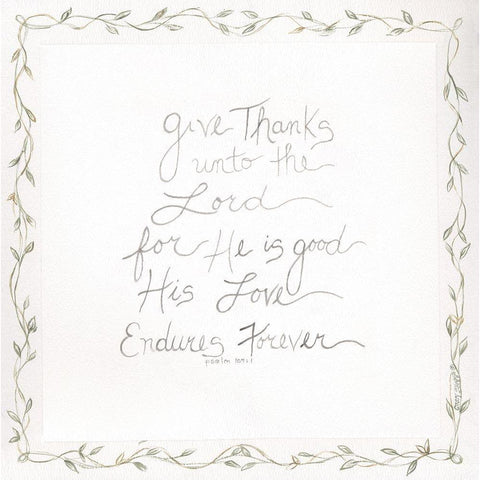 give Thanks
unto the
Lord
for He is good
His Love
Endures Forever